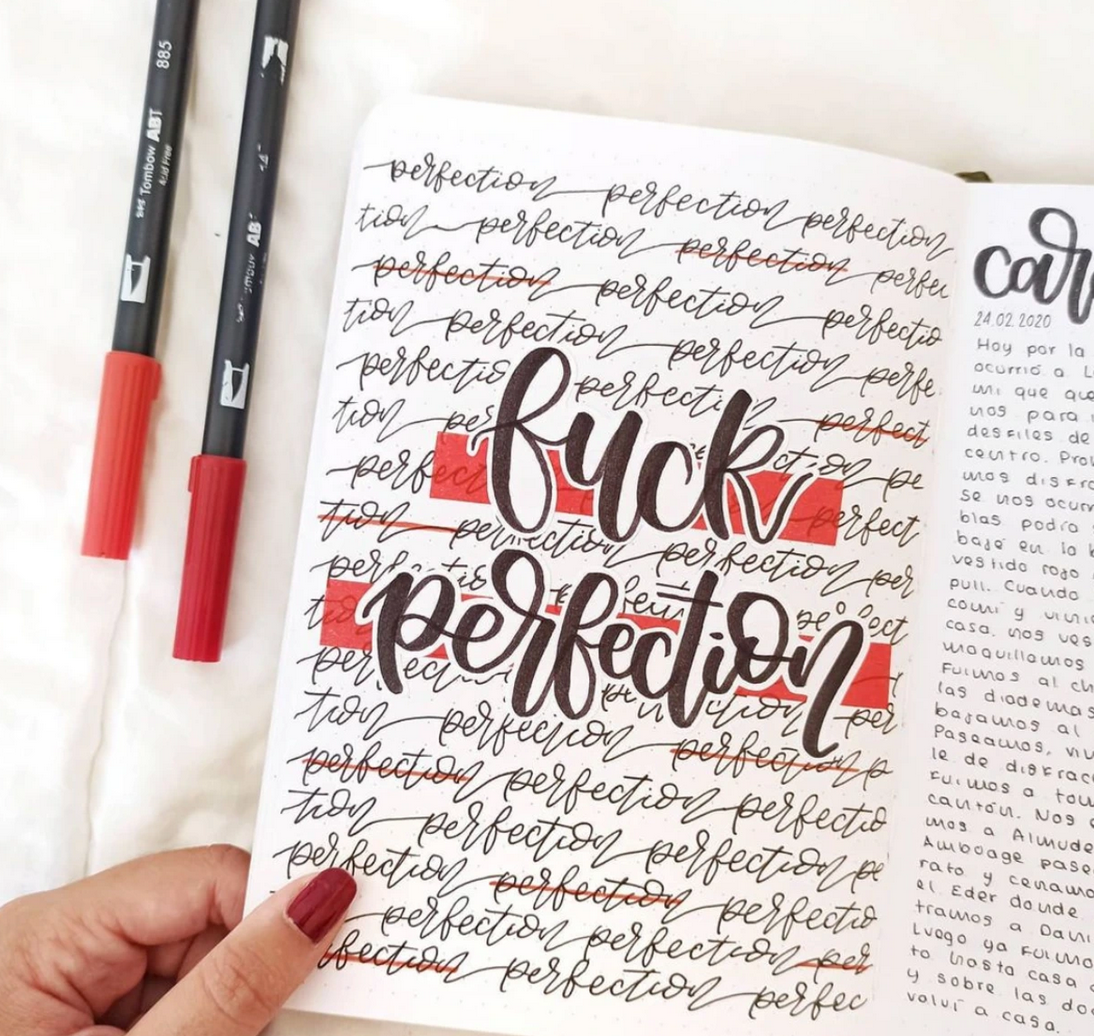 885
Tombow ABT
Acid Free
AB
perfection perfection perfection
tion perfection perfection perfec
perfection perfection perfectio
tion perfection perfection perfe
perfectio perfecti perfect
tion pe ction pe
perfect perfect
fuck
tion perfection perfection per
perfectio perfect
perfection
tion
per
tion perfection perfection p
perfection perfection perfectio
tion perfection perfection pe
perfection perfection perfectio
perfection perfection per
fection perfection perfec
24.02.2020
Hoy por la
ocurrió a
mi que que
nos para
desfiles de
centro.
mos disfra
se nos ocurr
blas podía
bajé en la b
vestido rojo
pull. Cuando
comí y vini
casa. nos ves
maquillamos
Fuimos al ch
las diademas
bajamos al
Paseamos, viv
le de disfrac
Fuimos a tom
cantón. Nos
mos a Almude
Amboage pase
rato y cenamo
el. Eder donde
tramos a Dani
Luego ya Fuimo
to hasta casa
y sobre las do
volví a casa.